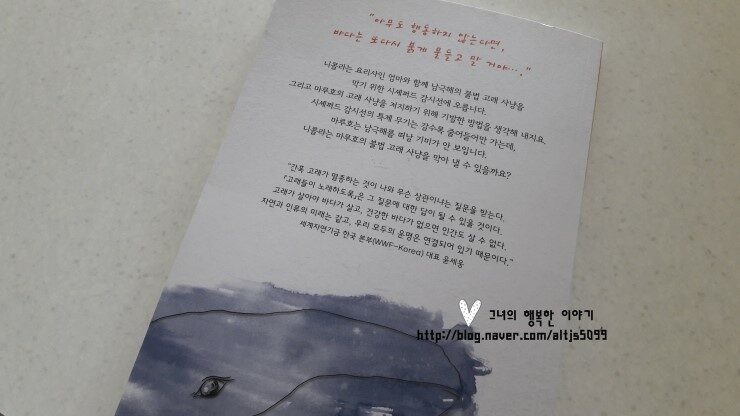 "아무도 행동하지 않는다면,
바다는 또다시 붉게 물들고 말 거야…."
니콜라는 요리사인 엄마와 함께 남극해의 불법 고래 사냥을
막기 위한 시셰퍼드 감시선에 오릅니다.
그리고 마루호의 고래 사냥을 저지하기 위해 기발한 방법을 생각해 내지요.
시셰퍼드 감시선의 특제 무기는 갈수록 줄어들어만 가는데,
마루호는 남극해를 떠날 기미가 안 보입니다.
니콜라는 마루호의 불법 고래 사냥을 막아 낼 수 있을까요?
"간혹 고래가 멸종하는 것이 나와 무슨 상관이냐는 질문을 받는다.
『고래들이 노래하도록』은 그 질문에 대한 답이 될 수 있을 것이다.
고래가 살아야 바다가 살고, 건강한 바다가 없으면 인간도 살 수 없다.
자연과 인류의 미래는 같고, 우리 모두의 운명은 연결되어 있기 때문이다."
세계자연기금 한국 본부(WWF-Korea) 대표 윤세웅
그녀의 행복한 이야기
http://blog.naver.com/altjs5099